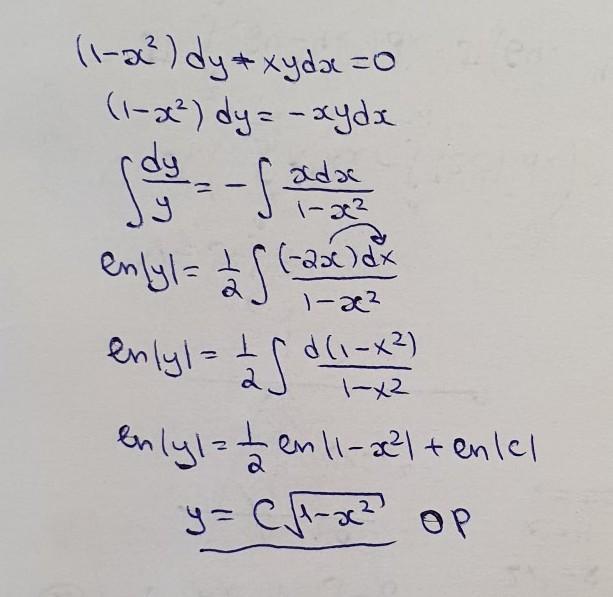 (1-x²) dy + xydx = 0
(1-x²) dy = -xydx
∫ dy/y = -∫ xdx/(1-x²)
ln|y| = 1/2 ∫ (-2x)dx/(1-x²)
ln|y| = 1/2 ∫ d(1-x²)/(1-x²)
ln|y| = 1/2 ln|1-x²| + ln|c|
y = C√(1-x²) OP